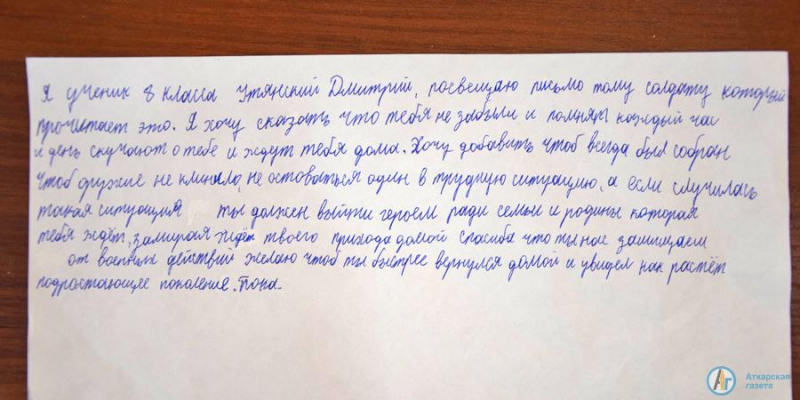 Я ученик 8 класса Утянский Дмитрий, посвещаю письмо тому солдату который
прочетает это. Я хочу сказать что тебя не забыли и помнят каждый час
и день скучают о тебе и ждут тебя дома. Хочу добавить чтоб всегда был собран
чтоб оружие не клинало, не оставаться один в трудную ситуацию, а если случилась
такая ситуация ты должен выйти героем ради семьи и родины которая
тебя ждёт, замирая ждёт твоего прихода домой спасиба что ты нас защищаем
от военных действий желаю чтоб ты быстрее вернулся домой и увидел как растёт
подрастающее поколение. Пока.
Аткарская
газета